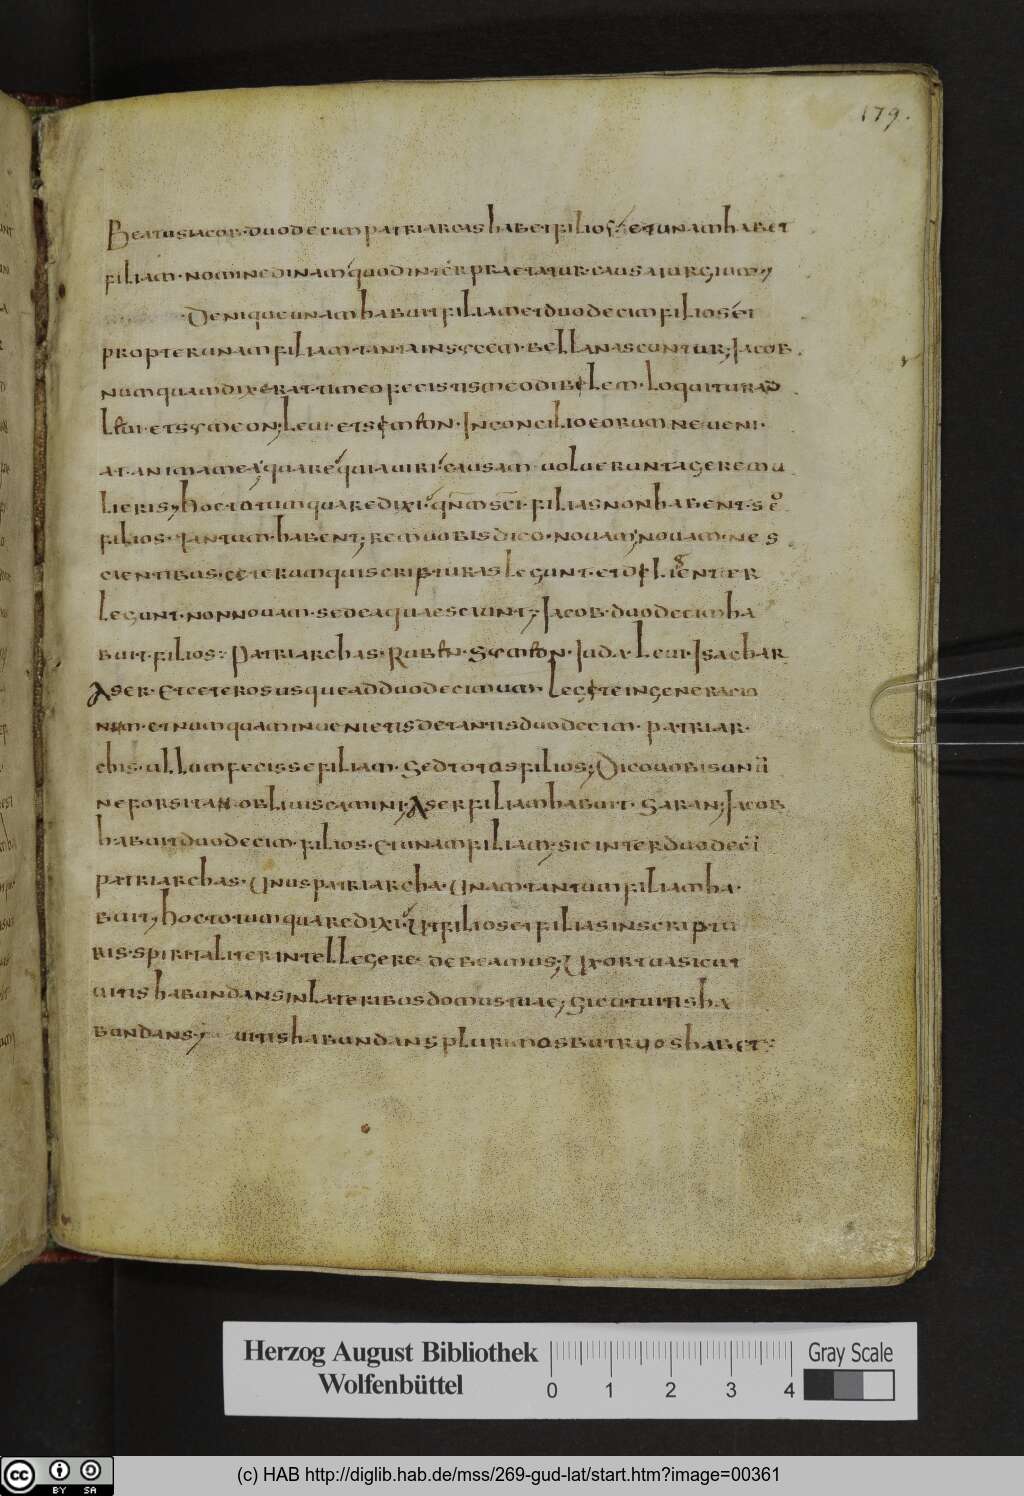 179.
Beatus iacob· duodecim patriarcas habet filios· et unam habet
filiam· nomine dinam quod interpraetatur· causa iurgium;
Denique unam habuit filiam et duodecim filios· et
propter unam filiam· tanta in sycem· bella nascuntur; Iacob
numquam dixerat timeo fecistis me odibilem· loquitur ad
leui· et symeon; leui· et symeon· In concilio eorum ne ueni·
at· anima mea; quare quia uiri causam uoluerunt agere mu
lieris; hoc totum quare dixi· qnm sci· filias non habent· s;
filios· tantum· habent; rem uobis dico· nouam; nouam· nes
cientibus· ceterum qui scripturas legunt· et diligenter
legunt· non nouam· sed ea quae sciunt; Iacob· duodecim ha
buit· filios: Patriarchas· Ruben· Symeon· Iuda· Leui· Isachar
Aser· Et ceteros usque ad duodecimum· Legite in generatio
num· et numquam inuenietis de tantis duodecim· patriar·
chis· ullum fecisse filiam· Sed totos filios; Dico uobis unu
ne forsitan obliuiscamini; Aser filiam habuit· Saran; Iacob
habuit duodecim· filios· Et unam filiam; sic inter duodeci
patriarchas· Unus patriarcha· Unam tantum filiam ha·
buit; hoc totum quare dixi· Ut filios et filias in scriptu
ris· spiritaliter intellegere· debeamus; Uxor tua sicut
uitis habundans in lateribus domus tuae; Sicut uitis ha
bundans; uitis habundans plurimos butryos habet:
Herzog August Bibliothek
Wolfenbüttel
0 1 2 3 4
Gray Scale
cc BY SA
(c) HAB http://diglib.hab.de/mss/269-gud-lat/start.htm?image=00361